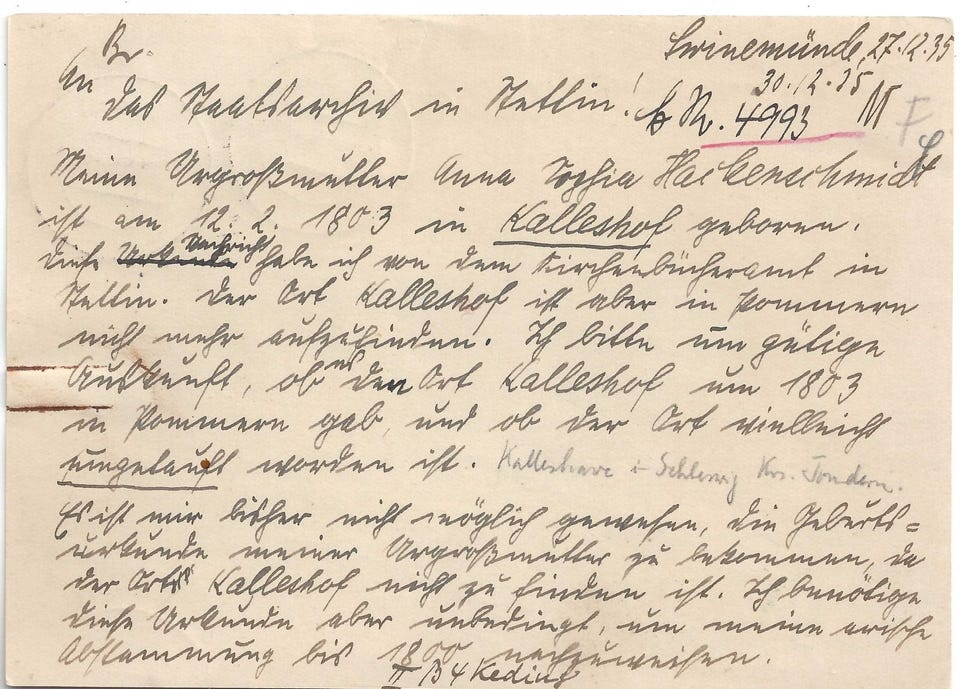 Br.
Swinemünde, 27.12.35
An
30.12.35
das Staatsarchiv in Stettin!
Nr. 4993 M
F
Meine Urgroßmutter Anna Sophia Hackenschmidt
ist am 12. 2. 1803 in Kalleshof geboren.
Diese Urkunde Nachricht habe ich von dem Kirchenbücheramt in
Stettin. Der Ort Kalleshof ist aber in Pommern
nicht mehr aufzufinden. Ich bitte um gütige
Auskunft, ob es den Ort Kalleshof um 1803
in Pommern gab, und ob der Ort vielleicht
umgetauft worden ist. Kalleshave i Schleswig Krs. Tondern.
Es ist mir bisher nicht möglich gewesen, die Geburts=
urkunde meiner Urgroßmutter zu bekommen, da
der Ort Kalleshof nicht zu finden ist. Ich benötige
diese Urkunde aber unbedingt, um meine arische
Abstammung bis 1800 nachzuweisen.